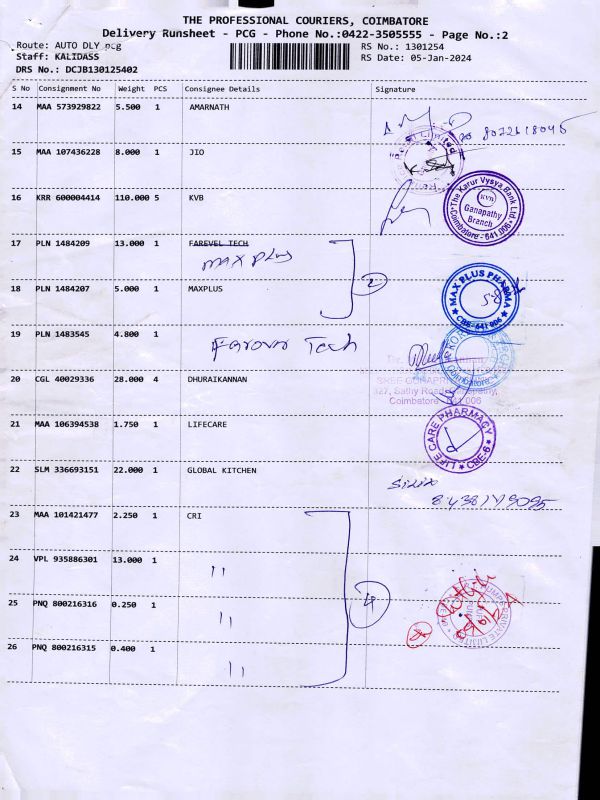 THE PROFESSIONAL COURIERS, COIMBATORE
Delivery Runsheet - PCG - Phone No.:0422-3505555 - Page No.:2
Route: AUTO DLY pcg RS No.: 1301254
Staff: KALIDASS RS Date: 05-Jan-2024
DRS No.: DCJB130125402
S No Consignment No Weight PCS Consignee Details Signature
14 MAA 573929822 5.500 1 AMARNATH
15 MAA 107436228 8.000 1 JIO
16 KRR 600004414 110.000 5 KVB
The Karur Vysya Bank Ltd.
KVB
Ganapathy
Branch
Coimbatore - 641 006
17 PLN 1484209 13.000 1 FAREVEL TECH
MAX PLUS
2
18 PLN 1484207 5.000 1 MAXPLUS
MAX PLUS PHARMA
CBE-641 006
19 PLN 1483545 4.800 1
Tech
20 CGL 40029336 28.000 4 DHURAIKANNAN
Sathy Road
Coimbatore
21 MAA 106394538 1.750 1 LIFECARE
LIFE CARE PHARMACY
CBE-6
22 SLM 336693151 22.000 1 GLOBAL KITCHEN
23 MAA 101421477 2.250 1 CRI
24 VPL 935886301 13.000 1 "
4
25 PNQ 800216316 0.250 1 "
26 PNQ 800216315 0.400 1 "